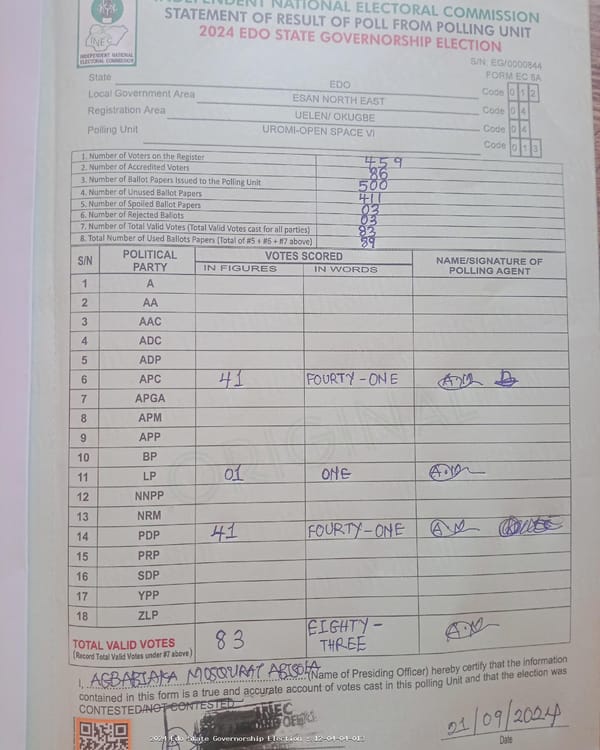 INDEPENDENT NATIONAL ELECTORAL COMMISSION
STATEMENT OF RESULT OF POLL FROM POLLING UNIT
2024 EDO STATE GOVERNORSHIP ELECTION
INEC
INDEPENDENT NATIONAL
ELECTORAL COMMISSION
S/N: EG/0000844
FORM EC 8A
State EDO Code 0 1 2
Local Government Area ESAN NORTH EAST Code 0 4
Registration Area UELEN/ OKUGBE Code 0 4
Polling Unit UROMI-OPEN SPACE VI Code 0 1 3
1. Number of Voters on the Register 459
2. Number of Accredited Voters 86
3. Number of Ballot Papers Issued to the Polling Unit 500
4. Number of Unused Ballot Papers 411
5. Number of Spoiled Ballot Papers 03
6. Number of Rejected Ballots 03
7. Number of Total Valid Votes (Total Valid Votes cast for all parties) 83
8. Total Number of Used Ballots Papers (Total of #5 + #6 + #7 above) 89
S/N POLITICAL PARTY VOTES SCORED NAME/SIGNATURE OF POLLING AGENT
IN FIGURES IN WORDS
1 A
2 AA
3 AAC
4 ADC
5 ADP
6 APC 41 FOURTY-ONE
7 APGA
8 APM
9 APP
10 BP
11 LP 01 ONE
12 NNPP
13 NRM
14 PDP 41 FOURTY-ONE
15 PRP
16 SDP
17 YPP
18 ZLP
ORIGINAL
TOTAL VALID VOTES 83 EIGHTY-THREE
(Record Total Valid Votes under #7 above)
I, AGBABIAKA MOSOURAT ABISOLA (Name of Presiding Officer) hereby certify that the information
contained in this form is a true and accurate account of votes cast in this polling Unit and that the election was
CONTESTED/NOT CONTESTED
INEC
21/09/2024
Date
2024 Edo State Governorship Election : 12-04-04-013